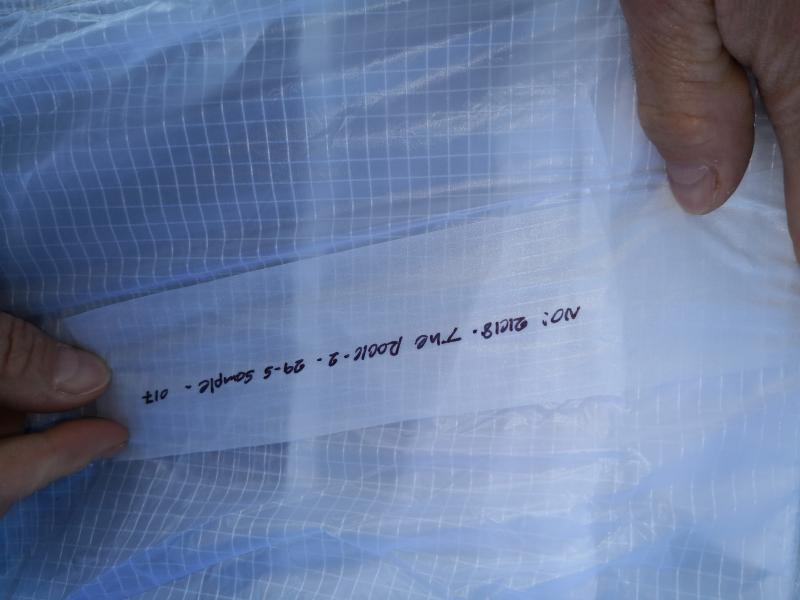 NO: 21C18. THe Rock-2. 29-S Sample - 017